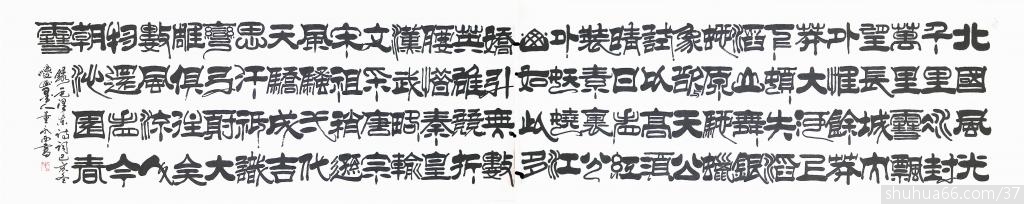 北國風光
千里冰封
萬里雪飄
望長城內
外惟餘莽
莽大河上
下頓失滔
滔山舞銀
蛇原馳蠟
象欲天公
試以高須
晴日看紅
裝素裹分
外妖嬈江
山如此多
嬌引無數
英雄競折
腰惜秦皇
漢武略輸
文采唐宗
宋祖稍遜
風騷弌代
天驕成吉
思汗祇識
彎弓射大
雕俱往矣
數風流人
物還看今
朝沁園春
雪
錄毛澤東詩詞己亥冬
書
shuhua66.com/37